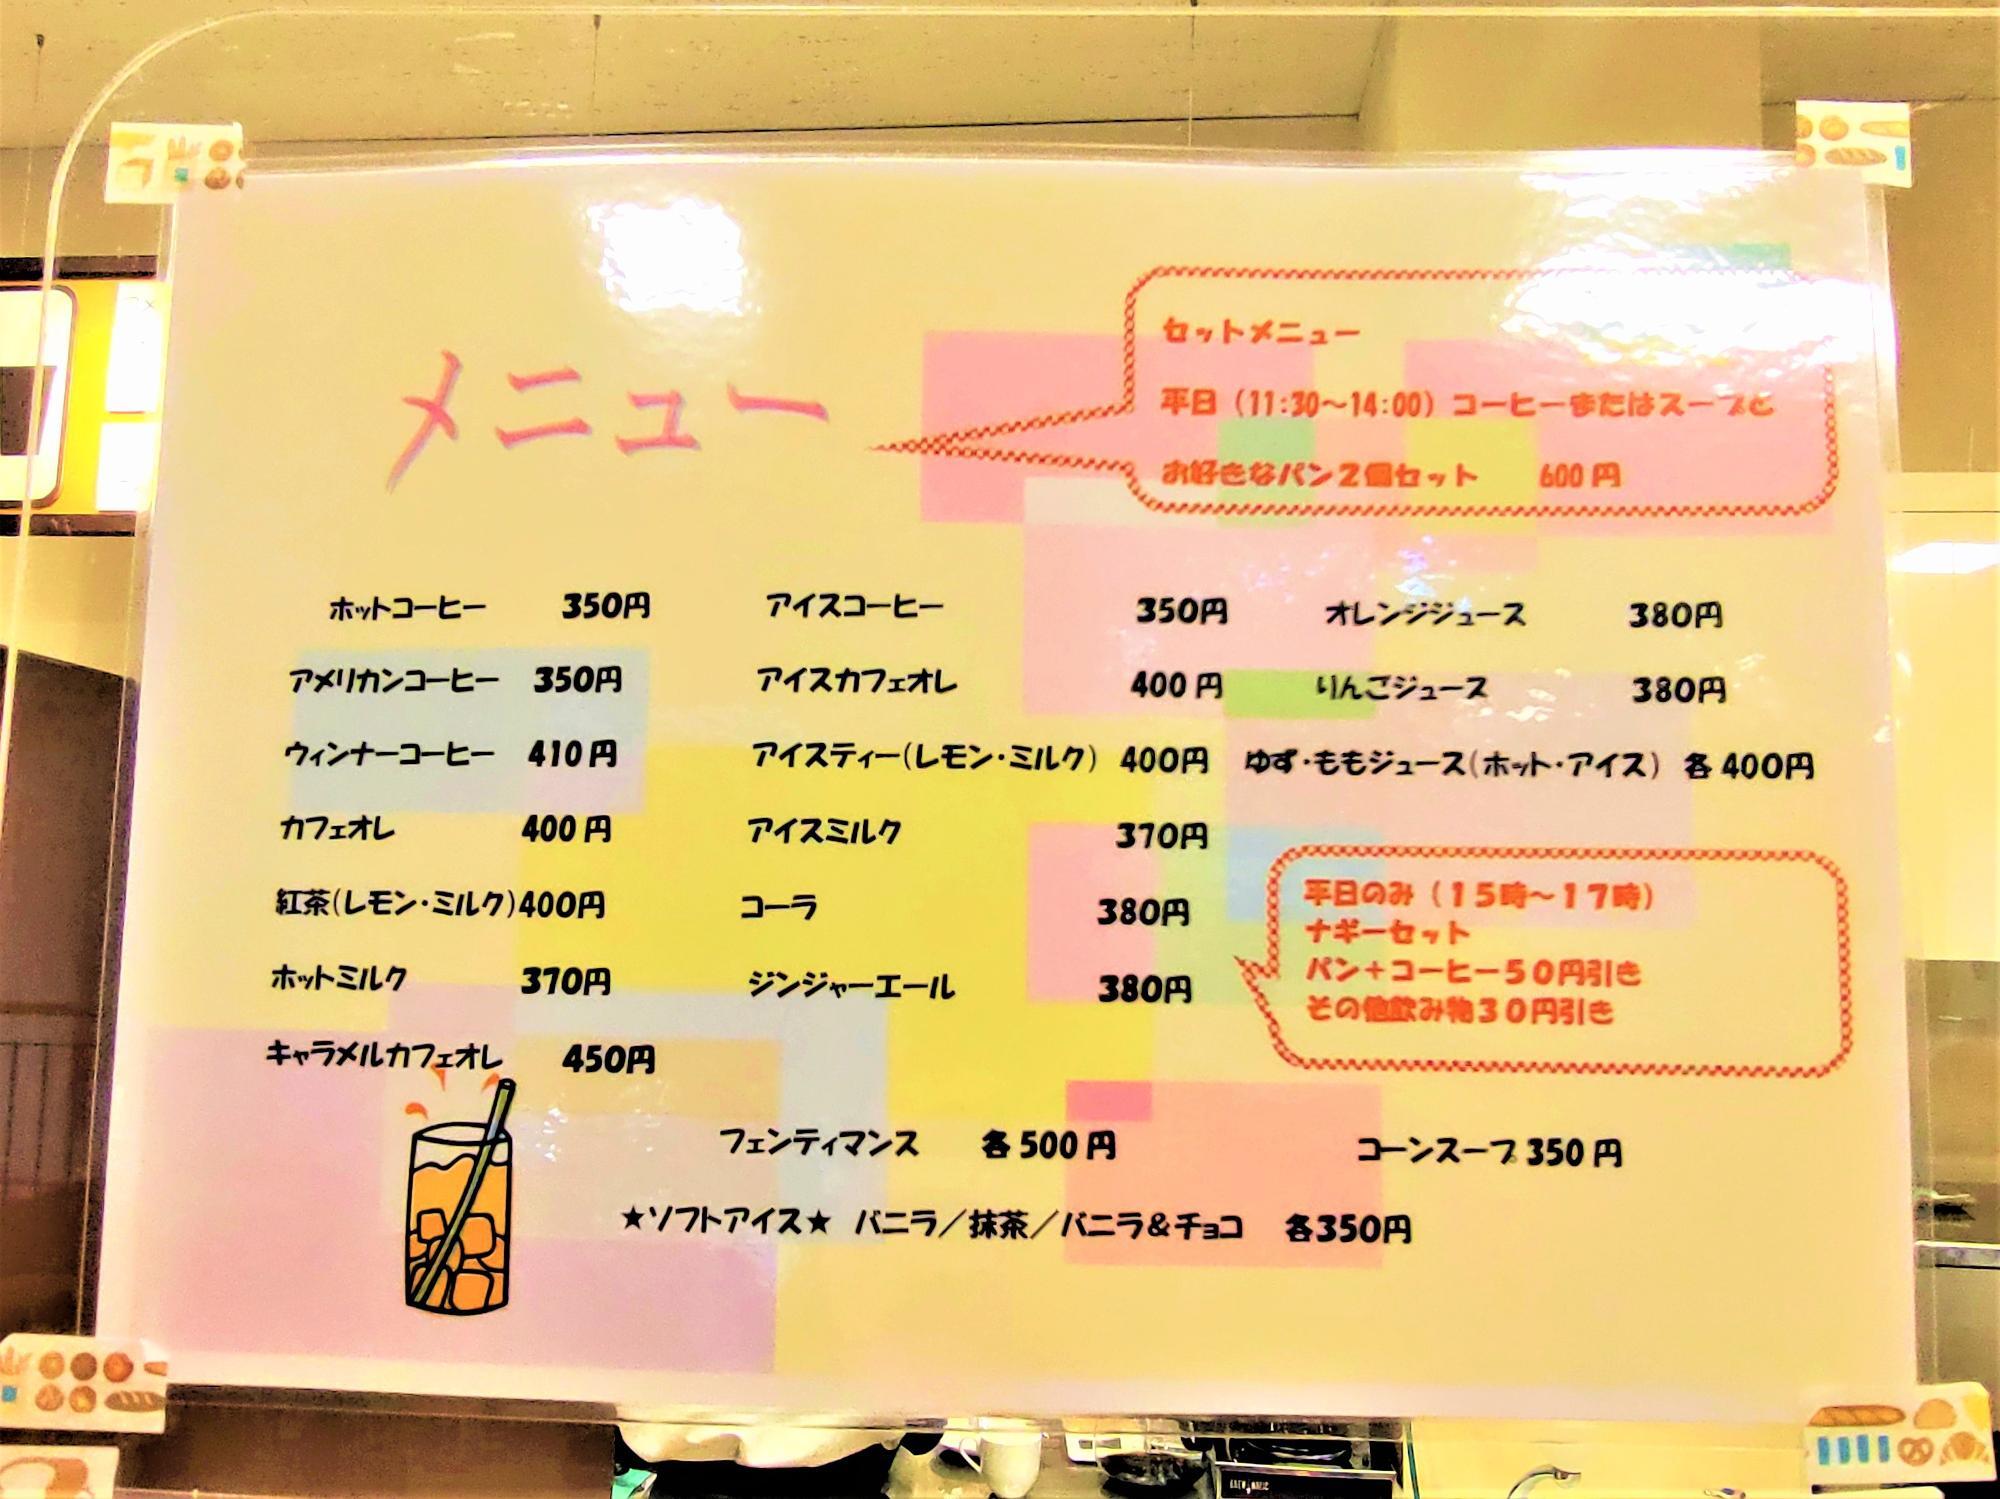 メニュー
セットメニュー
平日（11:30～14:00）コーヒーまたはスープと
お好きなパン２個セット 600円
ホットコーヒー 350円
アメリカンコーヒー 350円
ウィンナーコーヒー 410円
カフェオレ 400円
紅茶(レモン・ミルク)400円
ホットミルク 370円
キャラメルカフェオレ 450円
アイスコーヒー 350円
アイスカフェオレ 400円
アイスティー(レモン・ミルク) 400円
アイスミルク 370円
コーラ 380円
ジンジャーエール 380円
オレンジジュース 380円
りんごジュース 380円
ゆず・ももジュース(ホット・アイス) 各400円
平日のみ（１５時～１７時）
ナギーセット
パン＋コーヒー５０円引き
その他飲み物３０円引き
フェンティマンス 各500円
コーンスープ 350円
★ソフトアイス★ バニラ／抹茶／バニラ＆チョコ 各350円